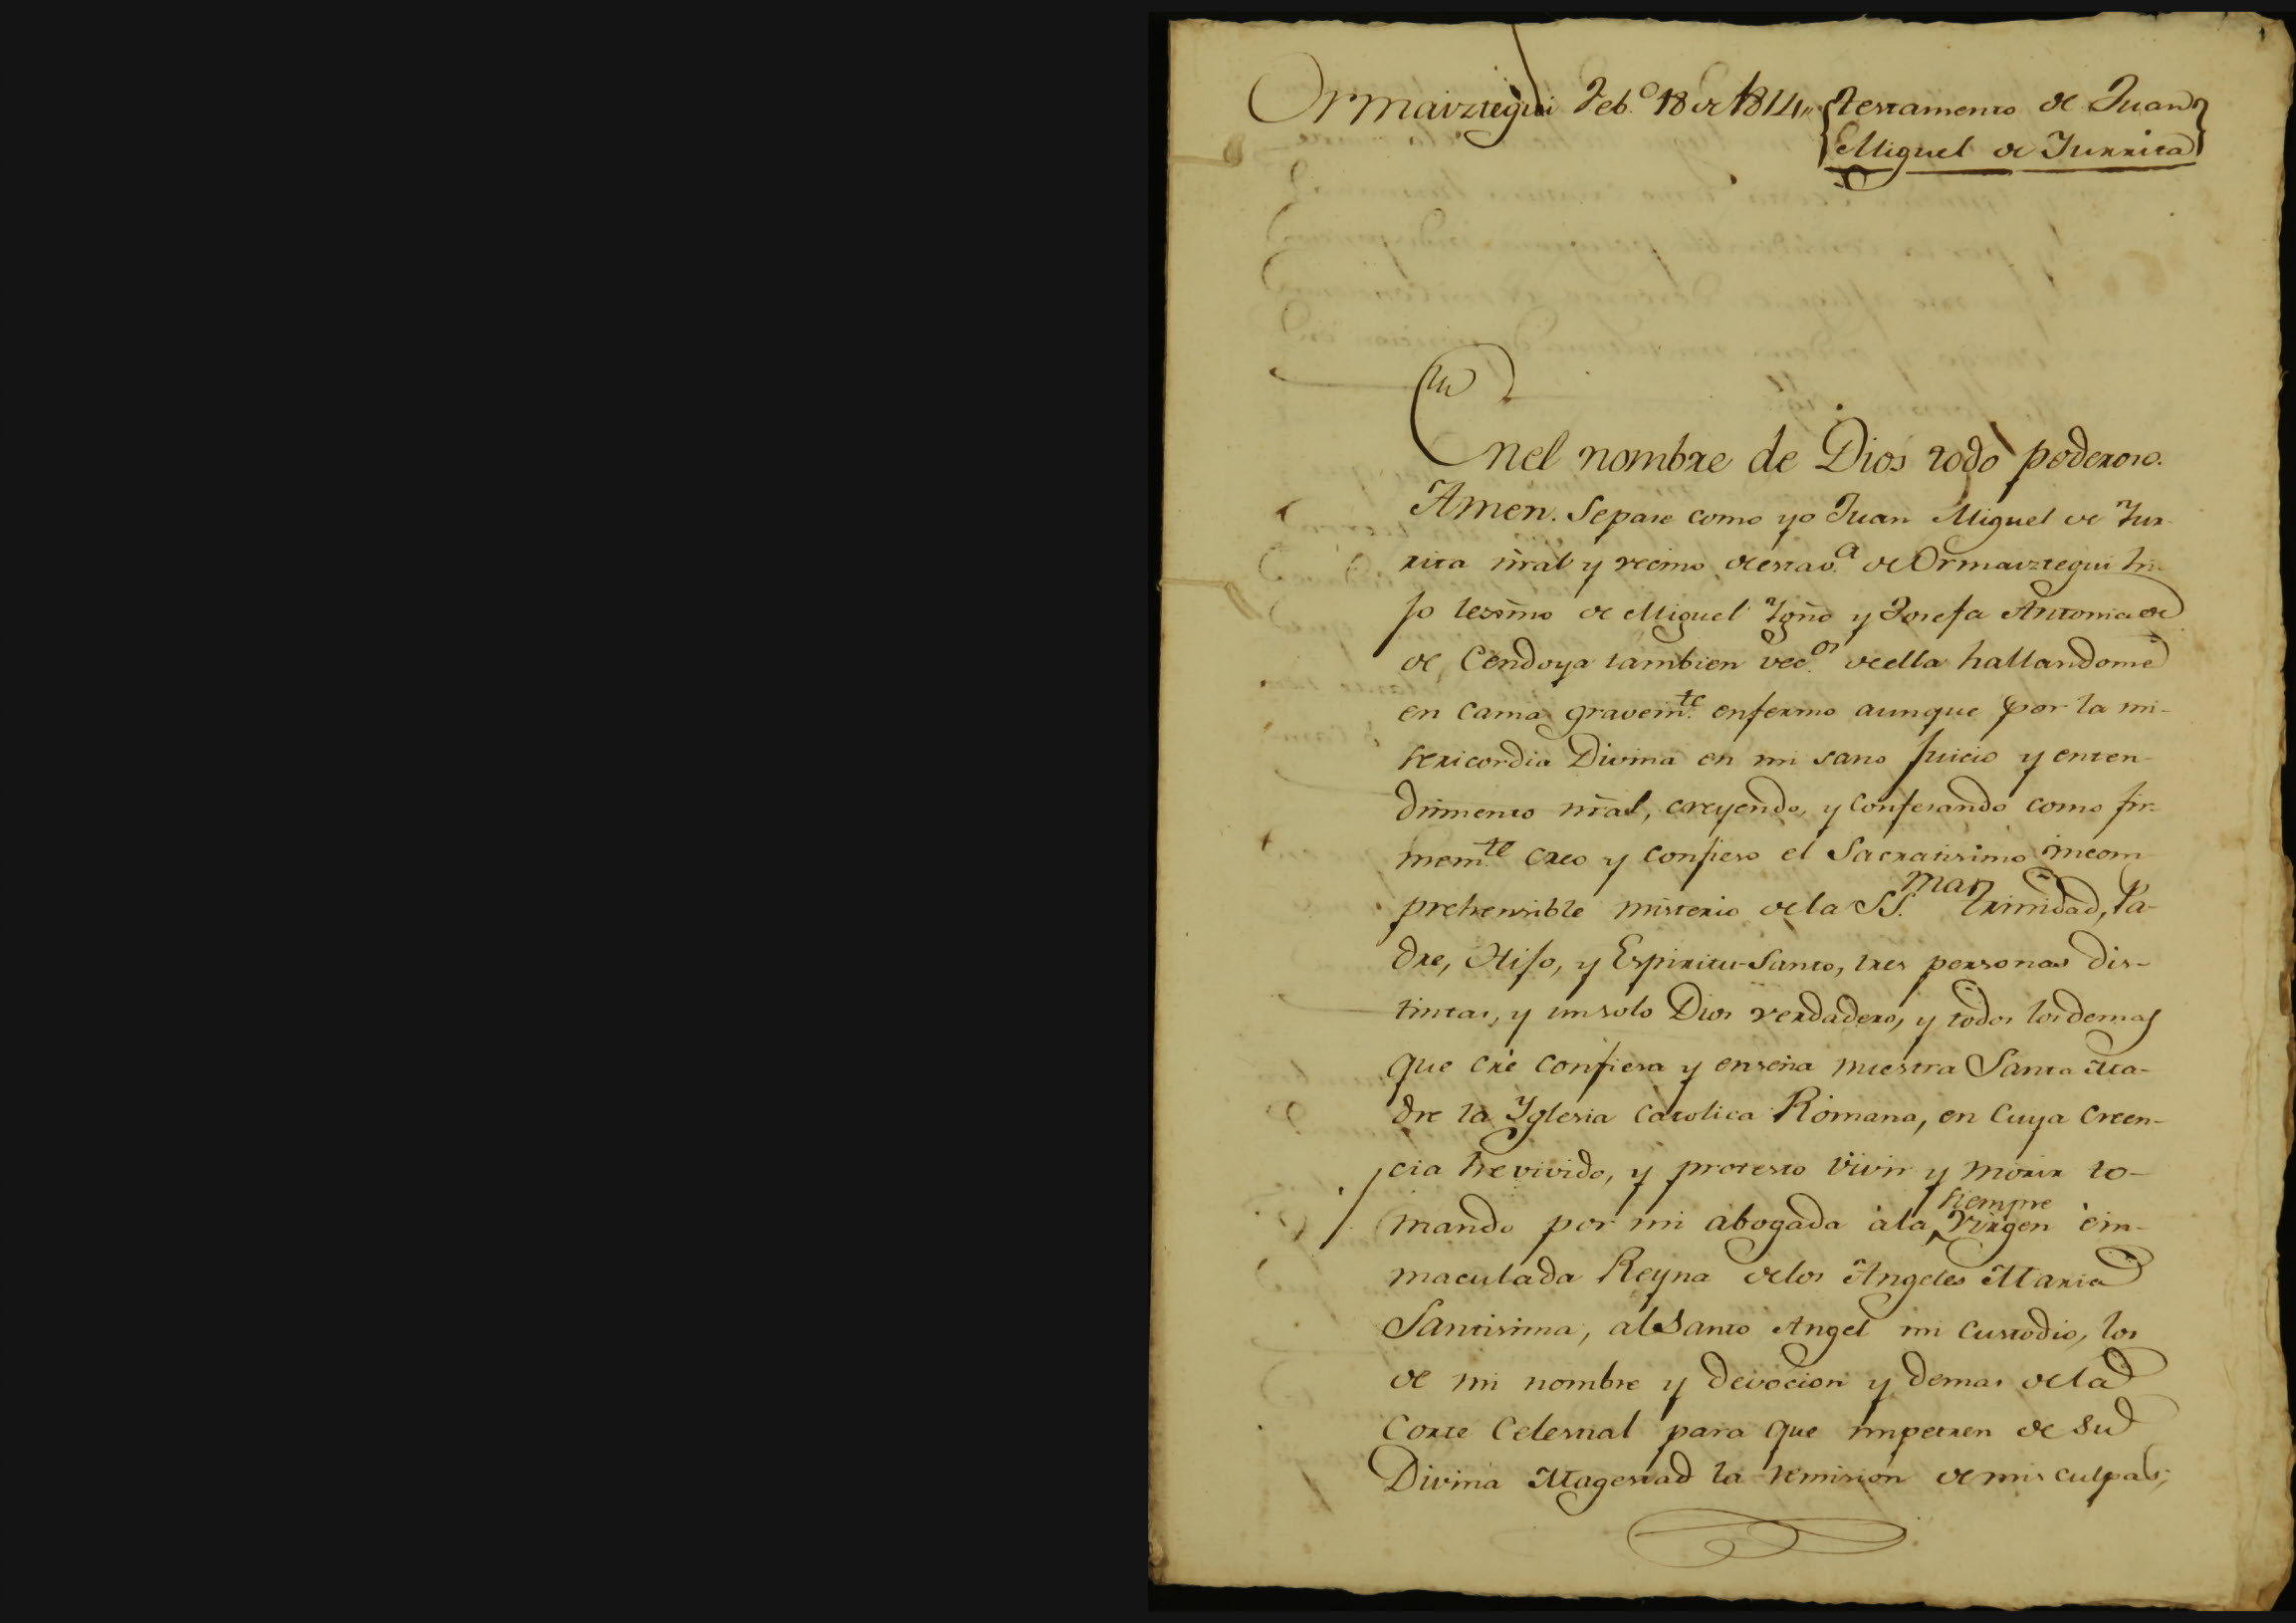 Ormaiztegui Feb.º 18 de 1814,, testamento de Juan
Miguel de Iurrita
En el nombre de Dios todo poderoso.
Amen. Sepase como yo Juan Miguel de Iur-
rita nral y vecino de esta v.ª de Ormaiztegui hi-
jo lexmo de Miguel Ygño y Josefa Antonia de
de Cendoya tambien vec.os de ella hallandome
en cama gravem.te enfermo aunque por la mi-
sericordia Divina en mi sano juicio y enten-
dimiento nral, creyendo, y confesando como fir-
mem.te creo y confieso el Sacratisimo incom-
prehensible misterio de la SS.ma Trinidad, Pa-
dre, Hijo, y Espiritu-Santo, tres personas dis-
tintas, y un solo Dios verdadero, y todos los demas
que cré confiesa y enseña nuestra Santa Ma-
dre la Yglesia Catolica Romana, en cuya creen-
cia he vivido, y protesto vivir y morir to-
siempre
mando por mi abogada á la Virgen é im-
maculada Reyna de los Angeles Maria
Santisima, al Santo Angel mi custodio, los
de mi nombre y devocion y demas de la
Corte Celestial para que impetren de su
Divina Magestad la remision de mis culpas,